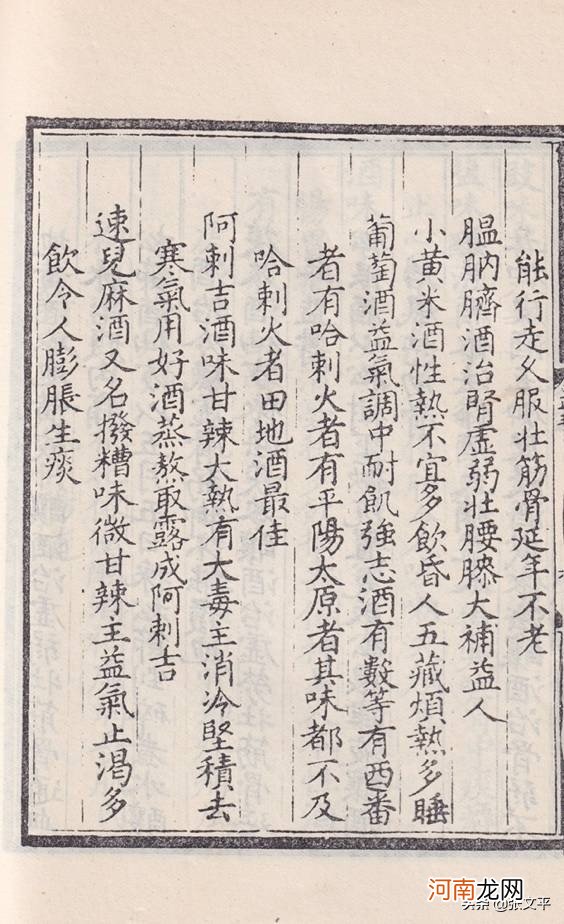 能行走久服壯筋骨延年不老
膃肭臍酒治腎虛弱壯腰膝大補益人
小黃米酒性熱不宜多飲昏人五藏煩熱多睡
葡萄酒益氣調中耐飢強志酒有數等有西番
者有哈剌火者有平陽太原者其味都不及
哈剌火者田地酒最佳
阿剌吉酒味甘辣大熱有大毒主消冷堅積去
寒氣用好酒蒸熬取露成阿剌吉
速兒麻酒又名撥糟味微甘辣主益氣止渴多
飲令人膨脹生痰
河南龙网
头条@张文平